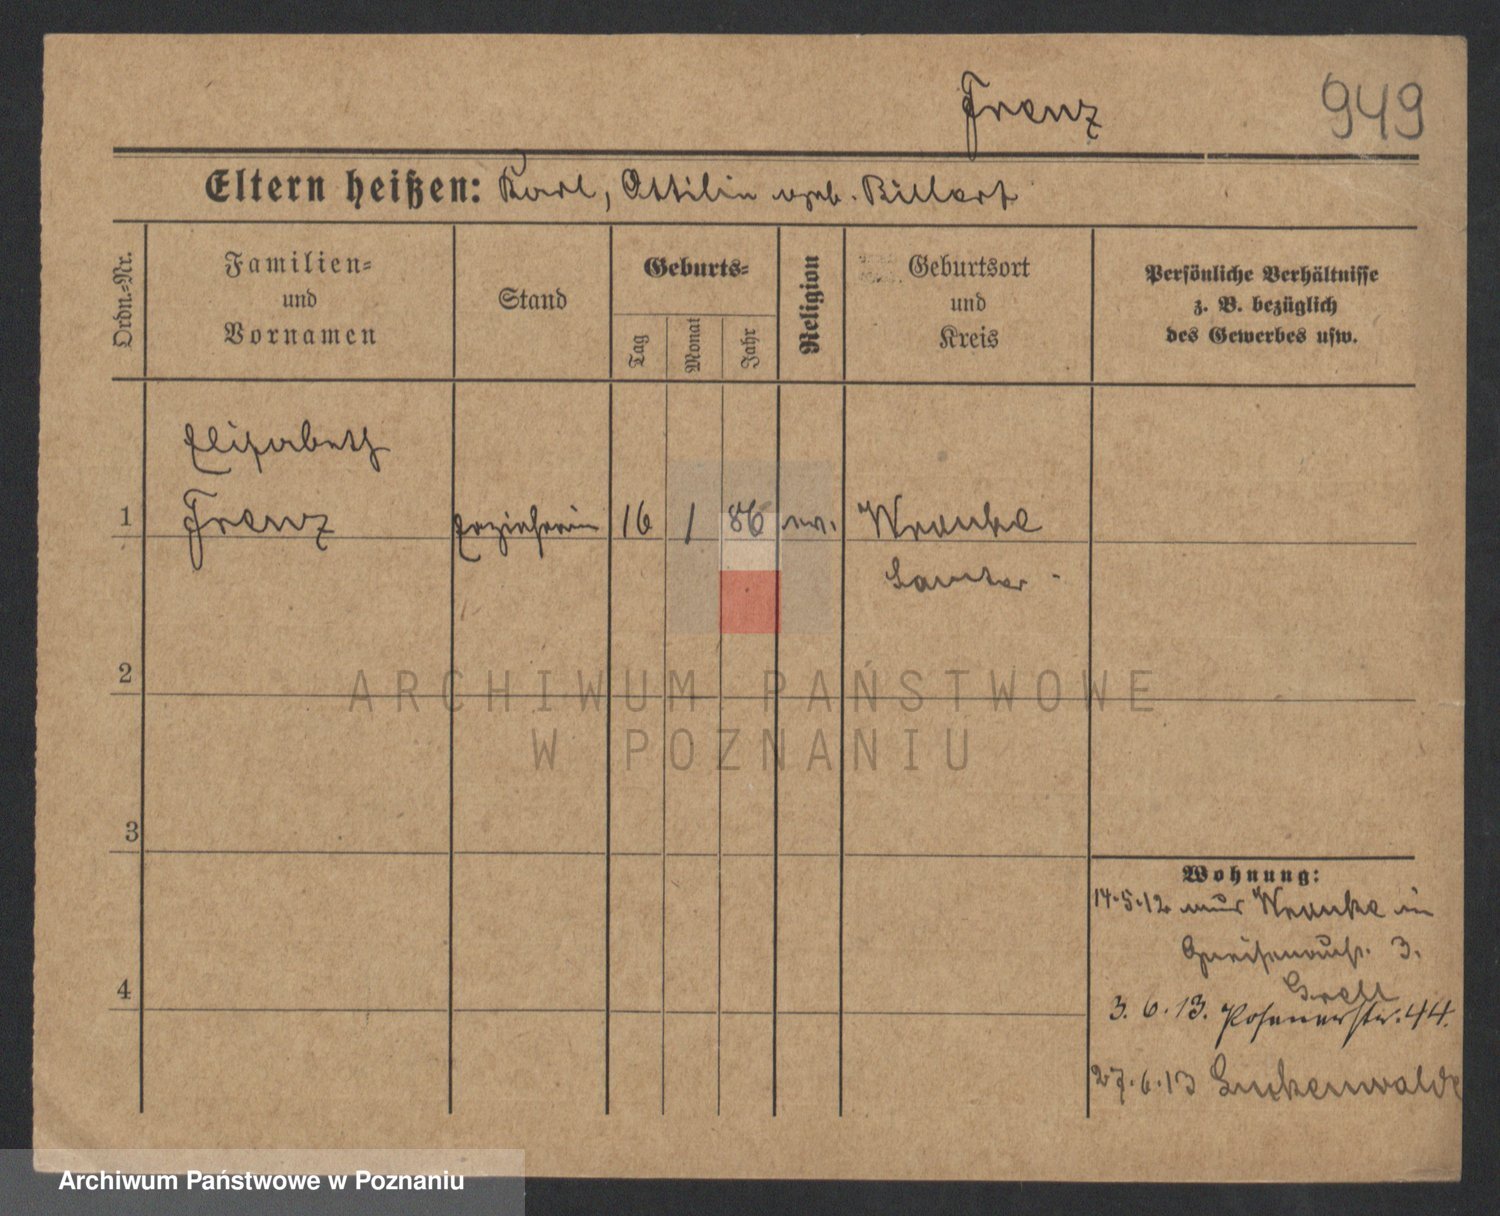 Frenz
949
Eltern heißen: Karl, Ottilie geb. Billert
Ordn.-Nr.
Familien-
und
Vornamen
Stand
Geburts-
Tag
Monat
Jahr
Religion
Geburtsort
und
Kreis
Persönliche Verhältnisse
z. B. bezüglich
des Gewerbes usw.
Elisabeth
1 Frenz Erzieherin 16 1 86 ev. Wronke
Samter
2
ARCHIWUM PAŃSTWOWE
W POZNANIU
3
Wohnung:
14.5.12 aus Wronke in
Gneisenaustr. 3.
4
3.6.13. Posenerstr. 44.
27.6.13 Luckenwalde
Archiwum Państwowe w Poznaniu